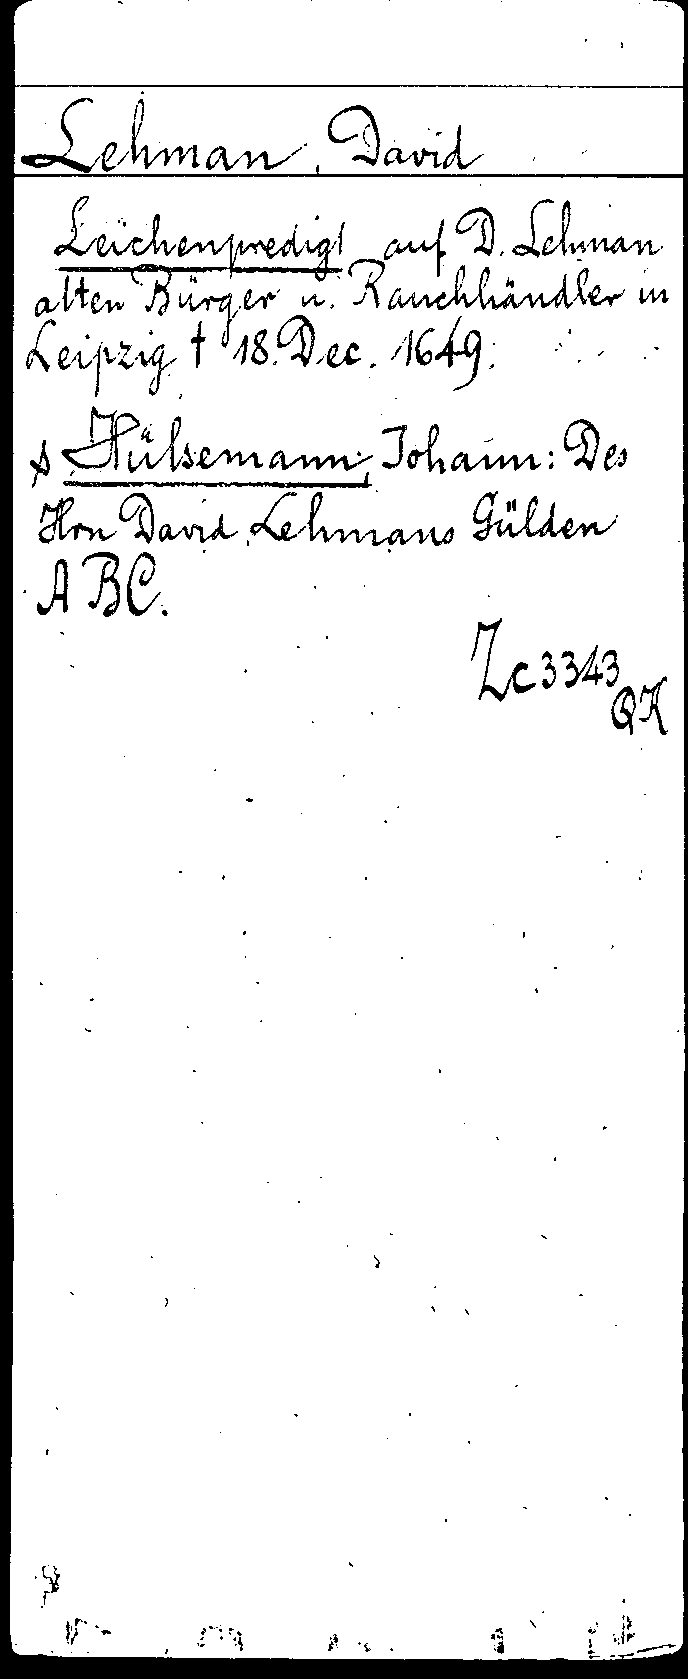 Lehman, David
Leichenpredigt auf D. Lehman
alten Bürger u. Rauchhändler in
Leipzig † 18. Dec. 1649.
s Hülsemann, Johann: Des
Hrn David Lehmans Gülden
ABC.
Zc 3343
QK